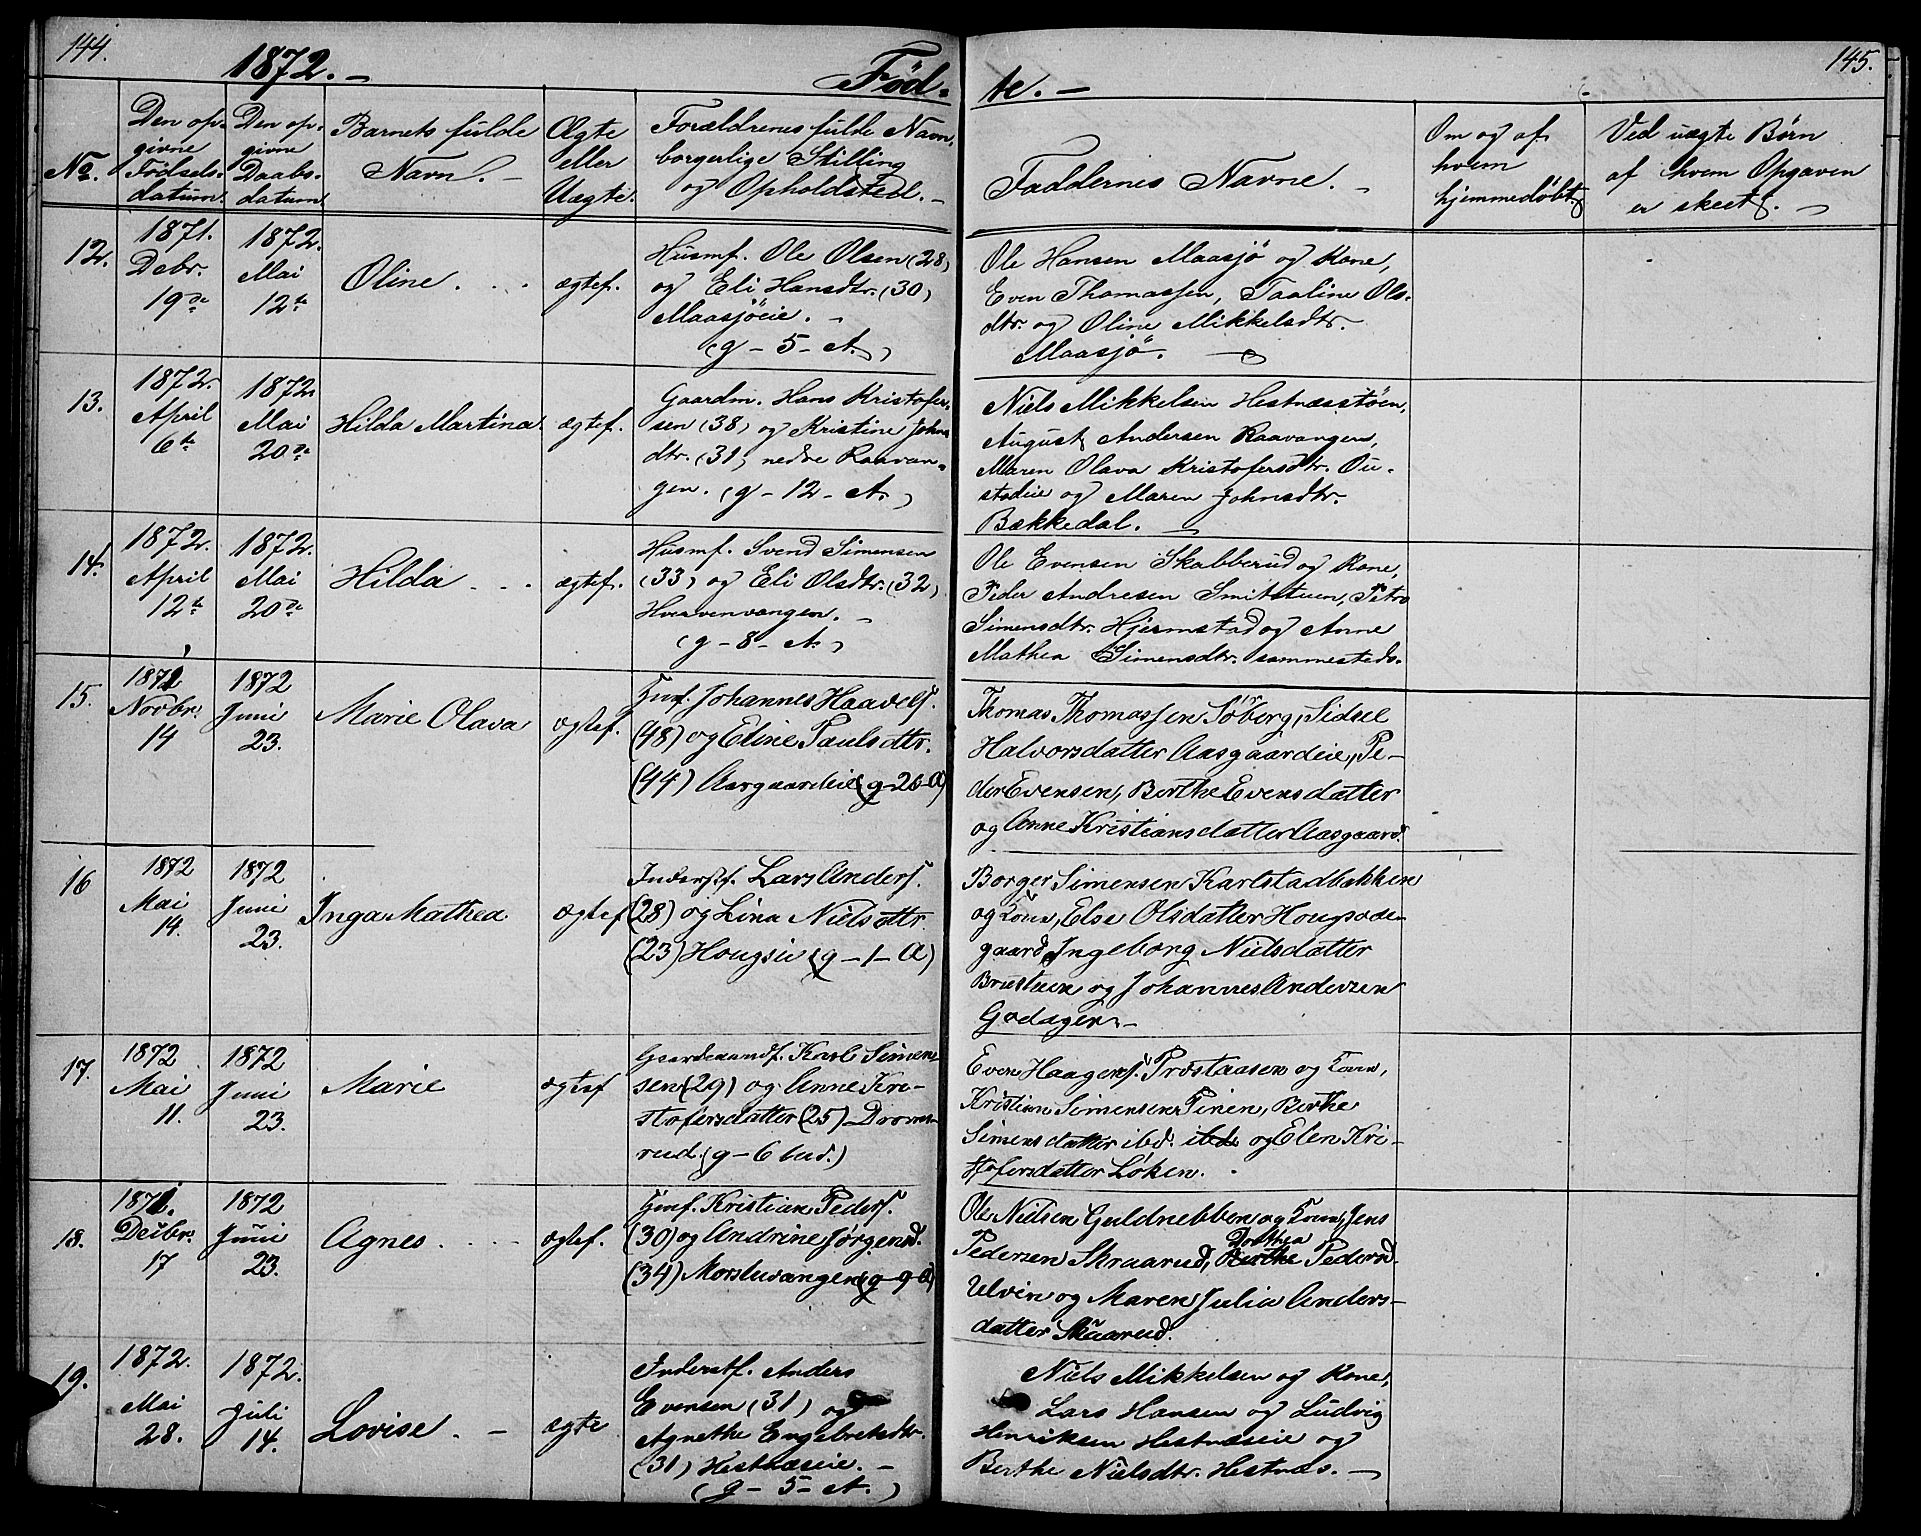 144.
1872. –
Fød-
te. –
145.
No.
Den op-
givne
Fødsels-
datum.
Den op-
givne
Daabs-
datum
Barnets fulde
Navn. –
Ægte
eller
Uægte.
Forældrenes fulde Navn,
borgerlige Stilling
og Opholdsted. –
Faddernes Navne. –
Om og af
hvem
hjemmedøbt
Ved uægte Børn
af hvem Opgaven
er skeet. –
12.
1871.
Debr.
19de
1872.
Mai
12te
Oline. . .
ægtef.
Husmf. Ole Olsen (28)
og Eli Hansdtr. (30)
Maasjöeie. –
(g – 5 – A.)
Ole Hansen Maasjö og Kone,
Even Thomassen, Taaline Ols-
dtr. og Oline Mikkelsdtr.
Maasjö. –
13.
1872.
April
6te
1872.
Mai
20de
Hilda Martina.
ægtef.
Gaardm. Hans Kristofer-
sen (38) og Kristine Johns
dtr. (31) nedre Raavan-
gen. (g – 12 – A.)
Niels Mikkelsen Hestnæsstöen,
August Andersen Raavangen,
Maren Olava Kristofersdtr. Ou-
stadeie og Maren Johnsdtr.
Bækkedal. –
14.
1872.
April
12te
1872.
Mai
20de
Hilda . . .
ægtef.
Husmf. Svend Simensen
(33) og Eli Olsdtr. (32)
Hvervenvangen. –
(g – 8 – A.)
Ole Evensen Skabberud og Kone,
Peder Andresen Smitstuen, Petra
Simensdtr. Hjermstad og Anne
Mathea Simensdtr. sammesteds.
15.
1871
Novbr.
14
1872
Juni
23.
Marie Olava
ægtef.
Husmf. Johannes Haavels.
(48) og Eline Paulsdtr.
(44) Aasgaardeie (g – 20 – A)
Thomas Thomassen Söberg, Sidsel
Halvorsdatter Aasgaardeie, Pe-
der Evensen, Berthe Evensdatter
og Anne Kristiansdatter Aasgaard.
16
1872
Mai
14.
1872
Juni
23.
Inga Mathea
ægtef
Inderstf. Lars Anders.
(28) og Lina Nielsdtr.
(23) Hougsei (g – 1 – A)
Borger Simensen Karlstadbakken
og Kone, Else Olsdatter Hougsøde-
gaard, Ingeborg Nielsdatter
Brustuen og Johannes Andersen
Godager. –
17.
1872
Mai
11.
1872
Juni
23.
Marie
ægtef
Gaardmandf. Karl Simen-
sen (29) og Anne Kri-
stofersdatter (25)
rud. (g – 6 bud.)
Even Haagens. Prøstaasen og Kone,
Kristian Simensen Finen, Berthe
Simensdatter ibd. ibd. og Elen Kri-
stofersdatter Løken.
18.
1871.
Decbr.
17
1872
Juni
23.
Agnes . . .
ægtef.
Husmf. Kristian Peders.
(30) og Andrine Jørgensd.
(34) Morstuvangen (g – 9 – A)
Ole Nielsen Guldnebben og Kone, Jens
Pedersen Skraarud, Dorthea Berthe Pedersd.
Ulvin og Maren Julia Anders-
datter Skaarud.
19.
1872.
Mai
28.
1872.
Juli
14.
Lovise. –
ægte
Inderstf. Anders
Evensen (31) og
Agnethe Engebretsdtr.
(31) Hestnæseie. –
(g – 5 – A.)
Niels Mikkelsen og Kone,
Lars Hansen og Ludvig
Henriksen Hestnæseie og
Berthe Nielsdtr. Hestnæs. –